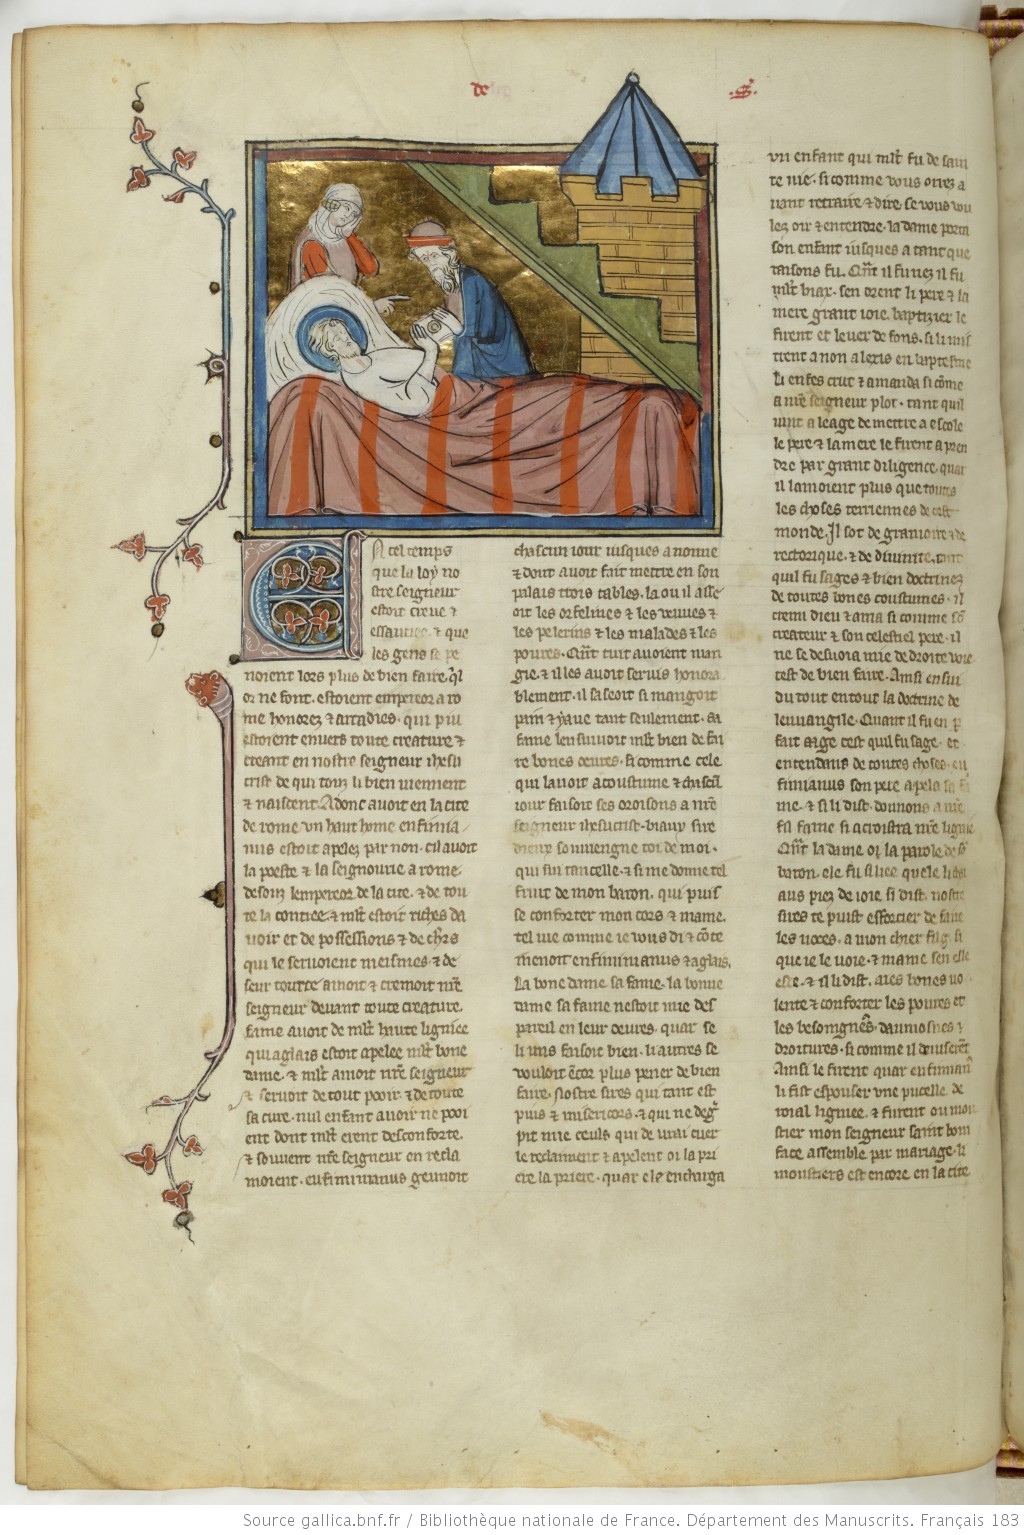 de
.S.
En cel temps
que la loy no
stre seigneur
estoit creue ⁊
essaucie. ⁊ que
les gens se pe
noient lors plus de bien faire. q̃l
or ne font. estoient empereor a ro
me honorez ⁊ arcadies. qui piu
estoient enuers toute creature ⁊
creant en nostre seigneur ihesu
crist de qui touz li bien uiennent
⁊ naiscent. Adonc auoit en la cite
de rome vn haut home eufimia
nus estoit apelez par non. cil auoit
la poeste ⁊ la seignourie a rome.
desouz lempereor de la cite. ⁊ de tou
te la contree. ⁊ ml̃t estoit riches da
uoir et de possessions ⁊ de
qui le seruoient meismes ⁊ de
seur tout ce amoit ⁊ cremoit nr̃e
seigneur deuant toute creature.
fame auoit de ml̃t haute lignee
qui aglais estoit apelee ml̃t bone
dame. ⁊ ml̃t amoit nr̃e seigneur
⁊ seruoit de tout pooir ⁊ de toute
sa cure. nul enfant auoir ne pooi
ent dont ml̃t erent desconforte.
⁊ souuent nr̃e seigneur en recla
moient. eufimianus geunoit
chascun iour iusques a nonne
⁊ dont auoit fait mettre en son
palais trois tables. la ou il asse
oit les orfelines ⁊ les veuues ⁊
les pelerins ⁊ les malades ⁊ les
poures. Qñt tuit auoient man
gie. ⁊ il les auoit seruis honora
blement. il saseoit si mangoit
pain ⁊ yaue tant seulement. sa
fame len suiuoit ml̃t bien de fai
re bones oeures. si comme cele
qui lauoit acoustume ⁊ chascũ
iour faisoit ses oroisons a nr̃e
seigneur ihesucrist. biaux sire
dieux souuiengne toi de moi.
qui sui tancelle. ⁊ si me donne tel
fruit de mon baron. qui puis
se conforter mon cors ⁊ mame.
tel uie comme ie vous di ⁊ cõte
menoit eufimianus ⁊ aglais.
La bone dame sa fame. la bonne
dame sa fame nestoit mie des
pareil en leur oeures. quar se
li uns faisoit bien. li autres se
vouloit ẽcor plus pener de bien
faire. Nostre sires qui tant est
puis ⁊ misericors. ⁊ qui ne deg̃
pit mie ceuls qui de vrai cuer
le reclaiment ⁊ apelent oi la pri
ere la priere. quar ele encharga
vn enfant qui ml̃t fu de sain
te uie. si comme vous orrez a
uant retraire ⁊ dire. se vous vou
lez oir ⁊ entendre. la dame porta
son enfant iusques a tant que
raisons fu. Qñt il fu nez il fu
ml̃t biax. sen orent li pere ⁊ la
mere grant ioie. baptizier le
firent et leuer de fons. si li mi
strent a non alexis en baptesme
li enfes crut ⁊ amanda si cõme
a nr̃e seigneur plot. tant quil
vint a leage de mettre a escole
le pere ⁊ la mere le firent apren
dre par grant diligence. quar
il lamoient plus que toutes
les choses terriennes de cest
monde. Il sot de gramoire ⁊ de
rectorique. ⁊ de diuinite. tant
quil fu sages ⁊ bien doctrinez
de toutes bones coustumes. il
cremi dieu ⁊ ama si comme sõ
createur ⁊ son celestiel pere. il
ne se desuoia mie de droite voie
cest de bien faire. Ainsi ensui
du tout en tout la doctrine de
leuuangile. Quant il fu en p̱
fait aage cest quil fu sage. et
entendans de toutes choses. eu
fimianus son pere apela sa fa
me. ⁊ si li dist. donnons a nr̃e
filz fame si acroistra nr̃e lignie
Qñt la dame oi la parole de sõ
baron. ele fu si liee quele li chei
aus piez de ioie. si dist. nostre
sires te puist efforcier de faire
les noces. a mon chier filz. si
que ie le voie. ⁊ mame sen esle
esce. ⁊ si li dist. aies bones uo
lente ⁊ conforter les poures et
les besoingnẽs. daumosnes ⁊
droitures. si comme il deuiserẽt
Ainsi le firent quar eufimiañ
li fist espouser vne pucelle de
roial ligniee. ⁊ furent ou mou
stier mon seigneur saint boni
face assemble par mariage. li
moustiers est encore en la cite
Source gallica.bnf.fr / Bibliothèque nationale de France. Département des Manuscrits. Français 183